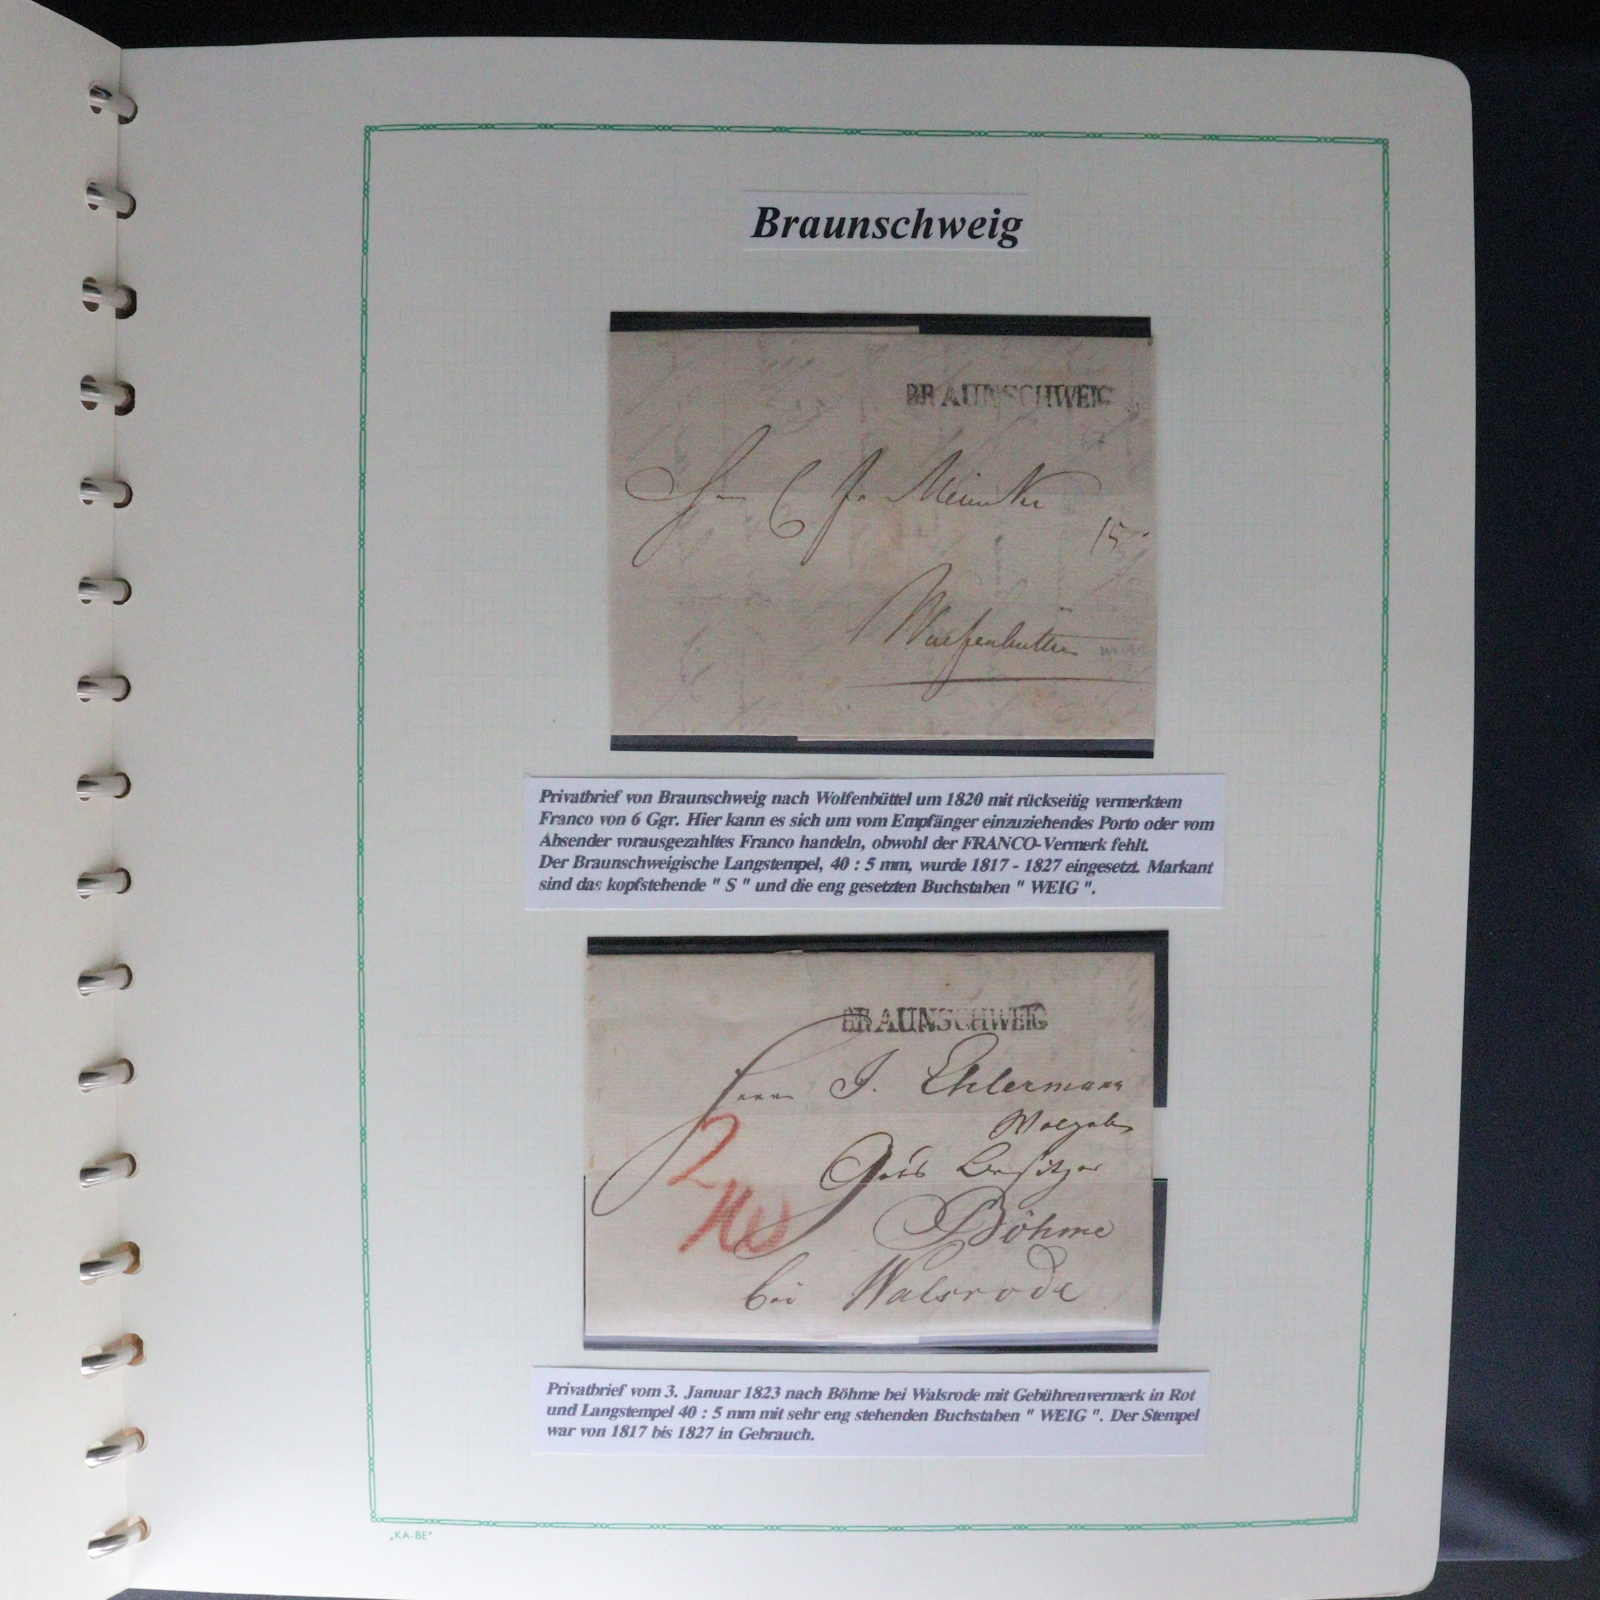 Braunschweig
BRAUNSCHWEIG
15
Wolfenbüttel
Privatbrief von Braunschweig nach Wolfenbüttel um 1820 mit rückseitig vermerktem
Franco von 6 Ggr. Hier kann es sich um vom Empfänger einzuziehendes Porto oder vom
Absender vorausgezahltes Franco handeln, obwohl der FRANCO-Vermerk fehlt.
Der Braunschweigische Langstempel, 40 : 5 mm, wurde 1817 - 1827 eingesetzt. Markant
sind das kopfstehende " S " und die eng gesetzten Buchstaben " WEIG ".
BRAUNSCHWEIG
Herrn J. Ehlermann
2
Böhme
bei Walsrode
Privatbrief vom 3. Januar 1823 nach Böhme bei Walsrode mit Gebührenvermerk in Rot
und Langstempel 40 : 5 mm mit sehr eng stehenden Buchstaben " WEIG ". Der Stempel
war von 1817 bis 1827 in Gebrauch.
„KA-BE“